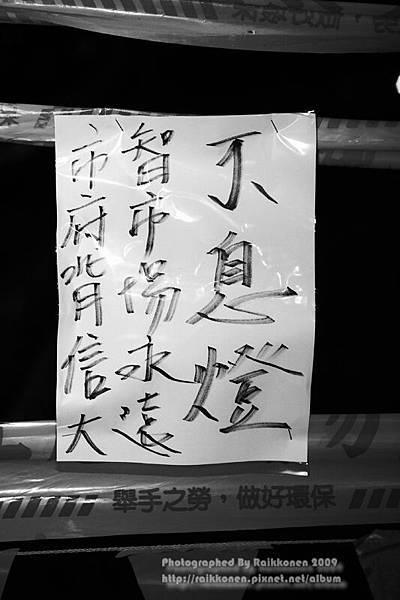 市府背信大
智市場永遠
不息燈
舉手之勞，做好環保
Photographed By Raikkonen 2009
http://raikkonen.pixnet.net/album